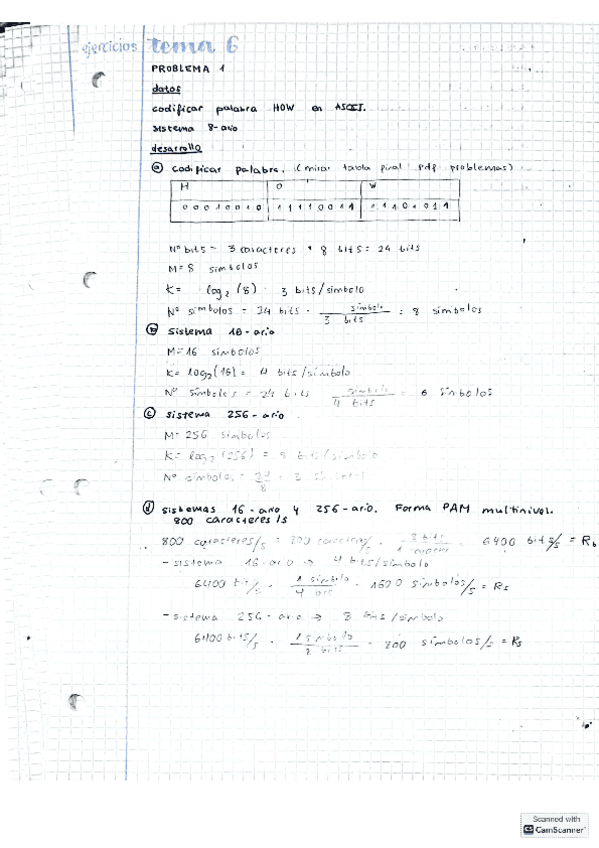 ejercicios tema 6
PROBLEMA 1
datos
codificar palabra HOW en ASCII.
sistema 8-ario
desarrollo
a) codificar palabra. (mirar tabla final pdf problemas)
H O W
0 0 0 1 0 0 1 0 1 1 1 1 0 0 1 1 1 1 1 0 1 0 1 1
Nº bits = 3 caracteres * 8 bits = 24 bits
M=8 simbolos
K= log2 (8) 3 bits/símbolo
Nº simbolos = 24 bits · símbolo / 3 bits = 8 símbolos
b) sistema 16-ario
M=16 símbolos
K= log2(16) = 4 bits/símbolo
Nº símbolos = 24 bits símbolo / 4 bits = 6 símbolos
c) sistema 256-ario
M= 256 símbolos
K= log2 (256) = 8 bits/símbolo
Nº símbolos = 24 / 8 = 3
d) sistemas 16-ario y 256-ario. Forma PAM multinivel.
800 caracteres/s
800 caracteres/s = 800 · 8 bits / 1 6400 bits/s = Rb
- sistema 16-ario → 4 bits/símbolo
6400 bits/s · 1 símbolo / 4 bits 1600 símbolos/s = Rs
- sistema 256-ario → 8 bits/símbolo
6400 bits/s · 1 símbolo / 8 bits 800 símbolos/s = Rs
Scanned with
CS CamScanner